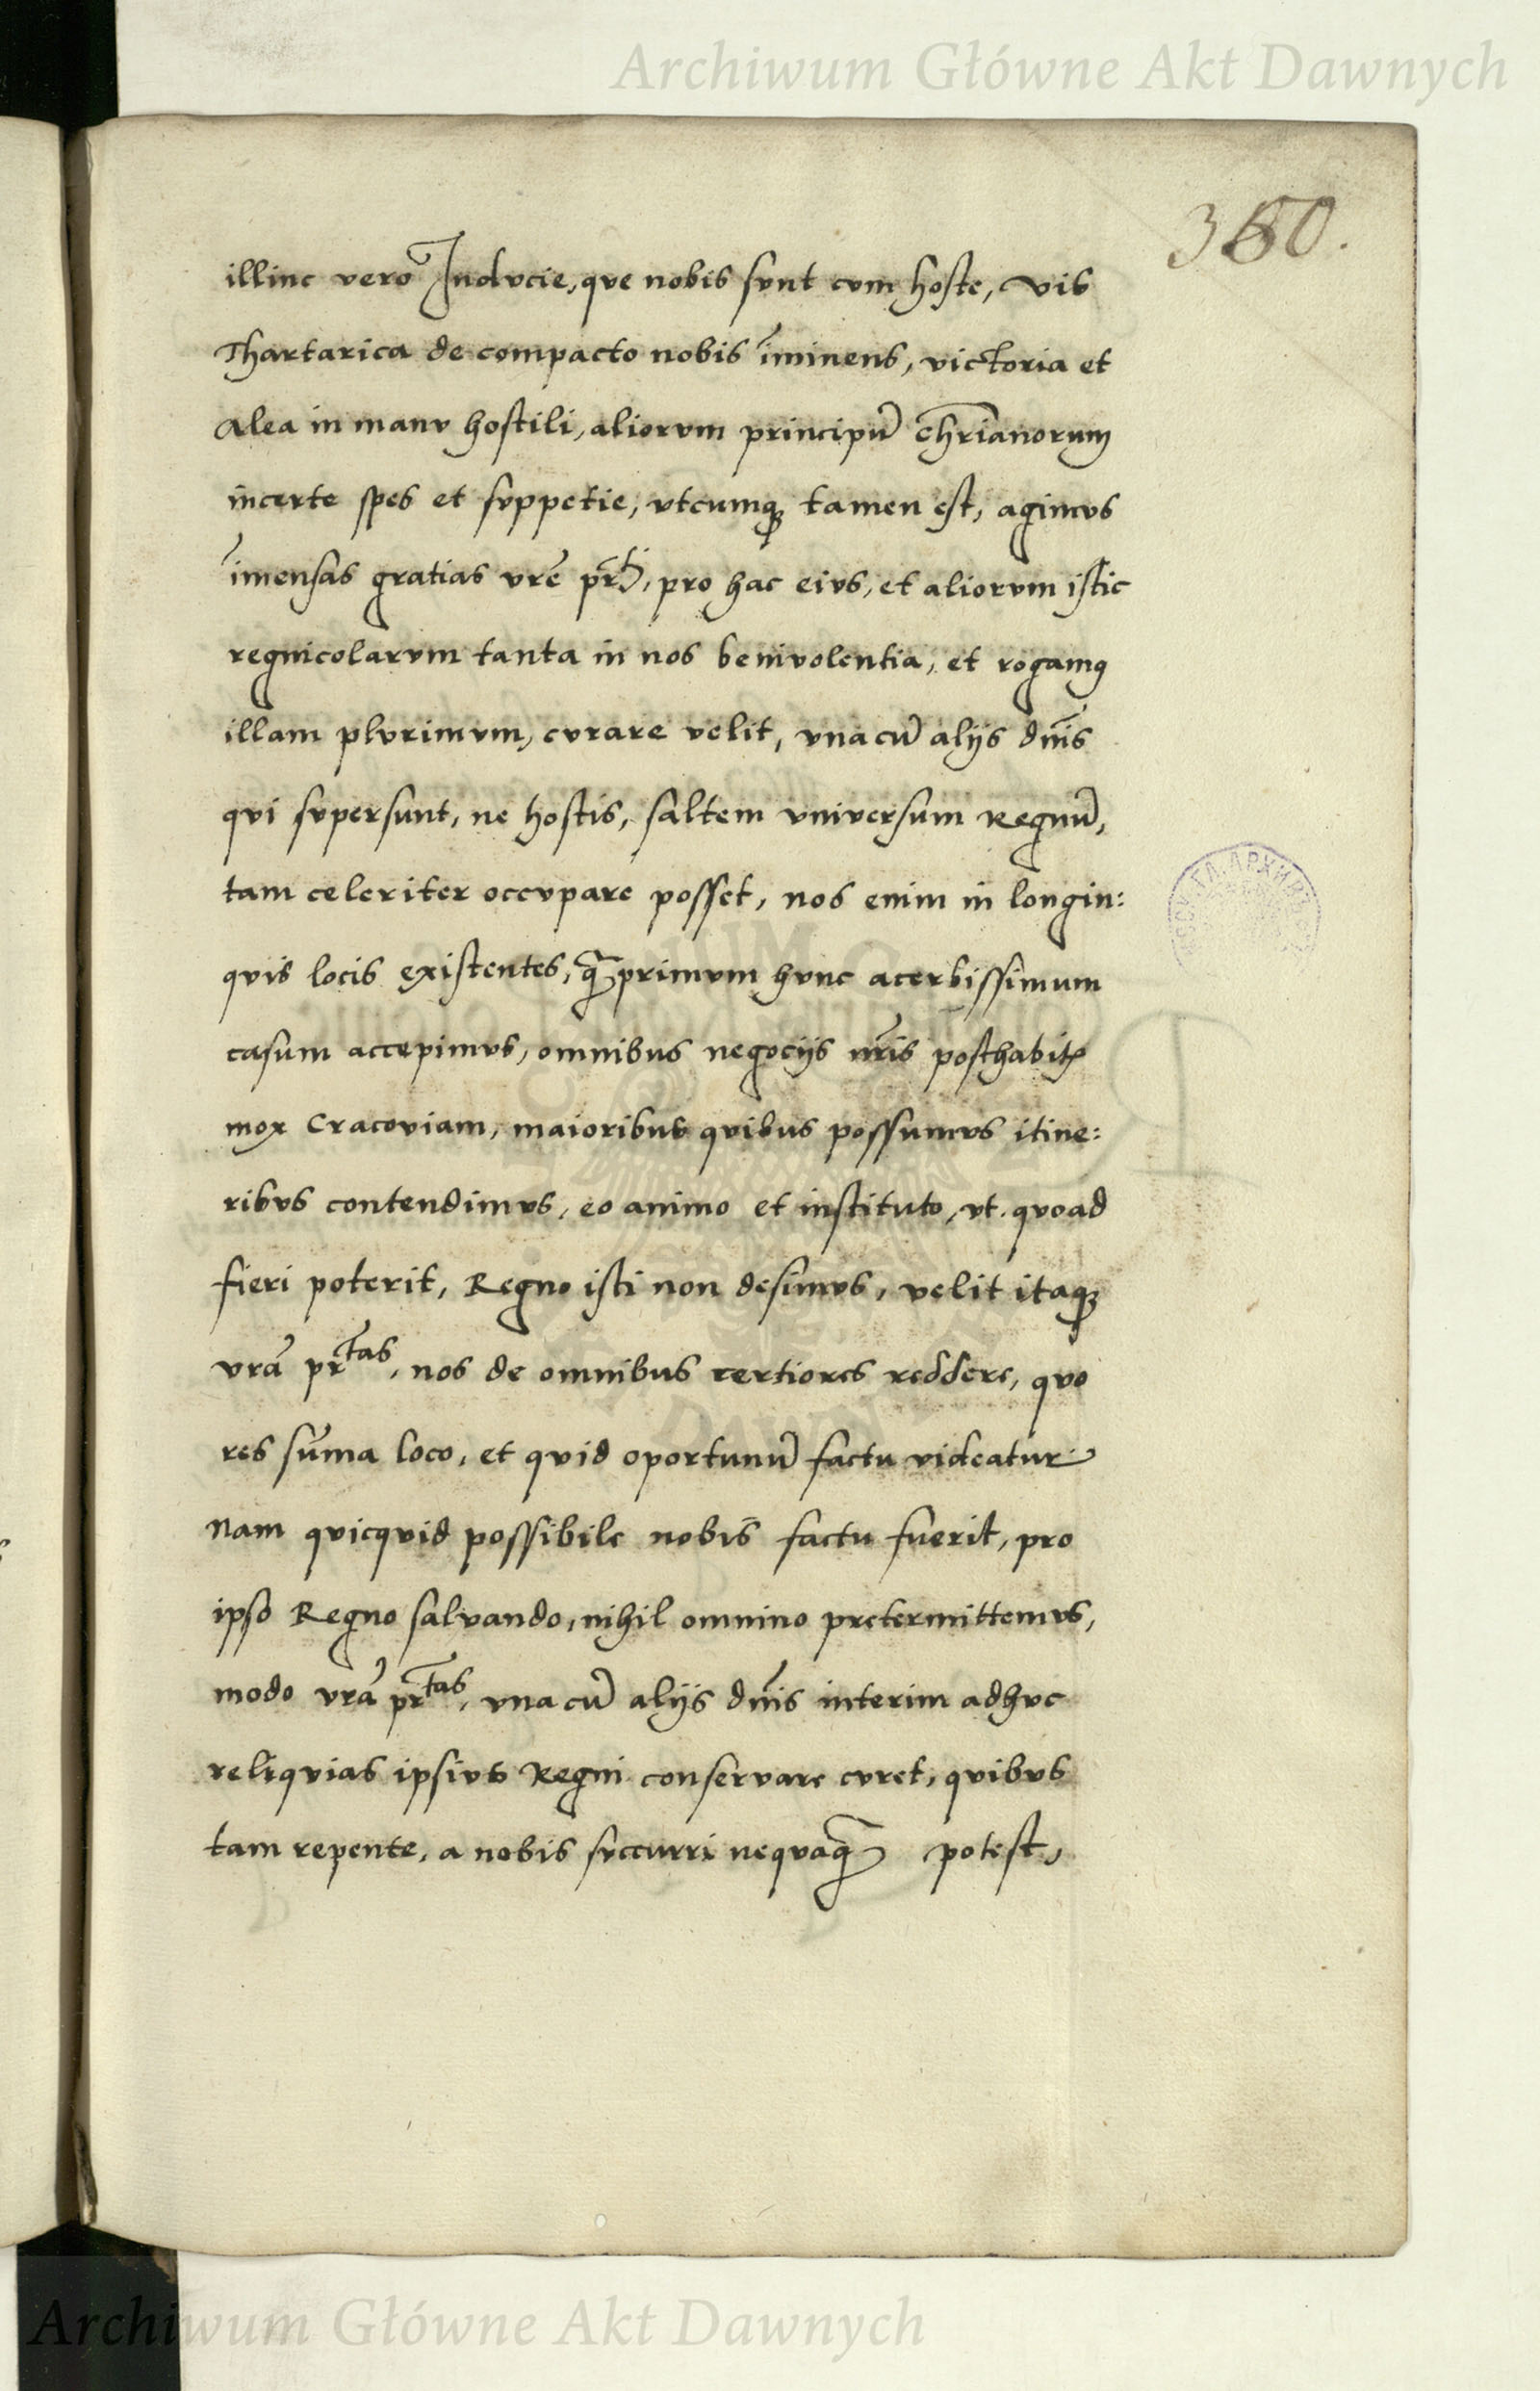 Archiwum Główne Akt Dawnych
360.
illinc vero Inducie, que nobis sunt cum hoste, vis
Thartarica de compacto nobis im̄inens, victoria et
Alea in manv hostili, aliorvm principū chr̄ianorum
incerte spes et svppetie, vtcumq; tamen est, agimvs
im̄ensas gratias vr̄e pr̄ti, pro hac eivs, et aliorvm istic
regnicolarvm tanta in nos benivolentia, et rogamꝰ
illam plvrimvm, cvrare velit, vna cū alijs dn̄is
qvi svpersunt, ne hostis, saltem vniversum Regnū,
tam celeriter occvpare posset, nos enim in longin:
qvis locis existentes, q̄primvm hvnc acerbissimum
casum accepimvs, omnibus negocijs nr̄is posthabitꝭ
mox Cracoviam, maioribus qvibus possumvs itine:
ribvs contendimvs, eo animo et instituto, vt qvoad
fieri poterit, Regno isti non desimvs, velit itaq;
vrā pr̄tas, nos de omnibus certiores reddere, qvo
res sum̄a loco, et qvid oportunū factu videatur
nam qvicqvid possibile nobis factu fuerit, pro
ipso Regno salvando, nihil omnino pretermittemvs,
modo vrā pr̄tas, vna cū alijs dn̄is interim adhvc
reliqvias ipsivs Regni conservare cvret, qvibvs
tam repente, a nobis svccurri neqvaq̄ potest,
Archiwum Główne Akt Dawnych